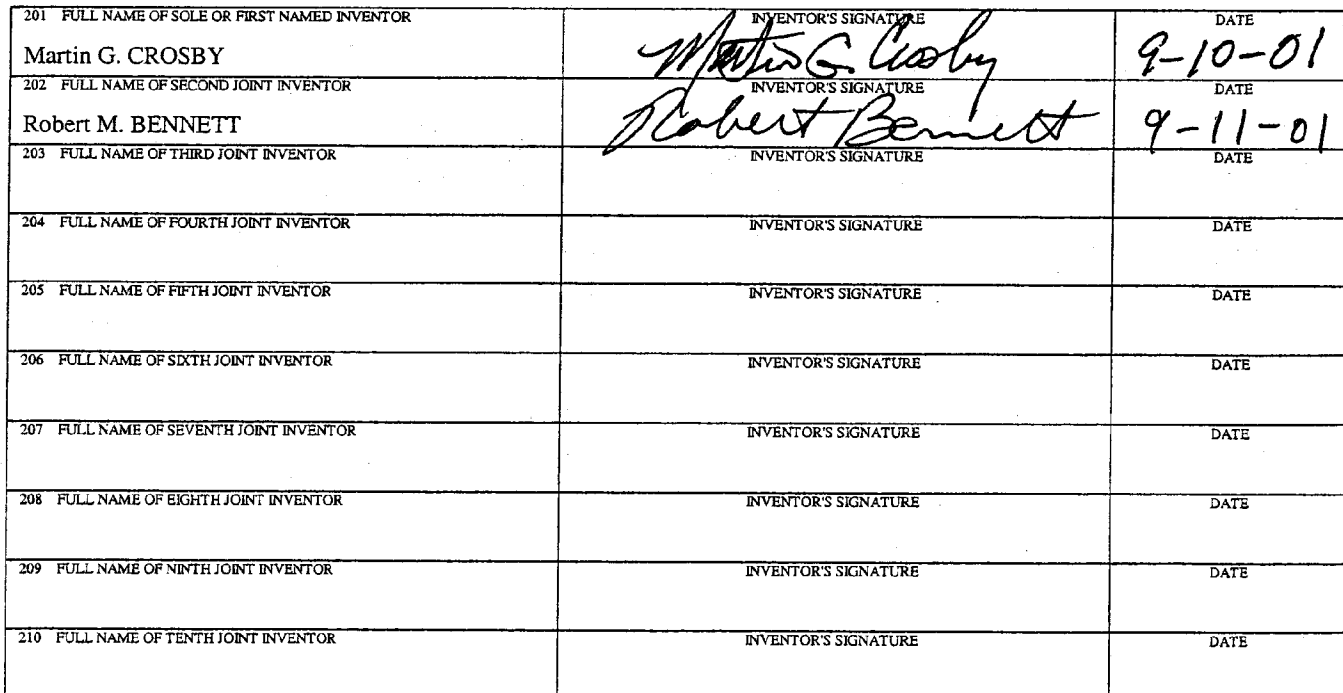 201 FULL NAME OF SOLE OR FIRST NAMED INVENTOR INVENTOR'S SIGNATURE DATE
Martin G. CROSBY Martin G. Crosby 9-10-01
202 FULL NAME OF SECOND JOINT INVENTOR INVENTOR'S SIGNATURE DATE
Robert M. BENNETT Robert Bennett 9-11-01
203 FULL NAME OF THIRD JOINT INVENTOR INVENTOR'S SIGNATURE DATE
204 FULL NAME OF FOURTH JOINT INVENTOR INVENTOR'S SIGNATURE DATE
205 FULL NAME OF FIFTH JOINT INVENTOR INVENTOR'S SIGNATURE DATE
206 FULL NAME OF SIXTH JOINT INVENTOR INVENTOR'S SIGNATURE DATE
207 FULL NAME OF SEVENTH JOINT INVENTOR INVENTOR'S SIGNATURE DATE
208 FULL NAME OF EIGHTH JOINT INVENTOR INVENTOR'S SIGNATURE DATE
209 FULL NAME OF NINTH JOINT INVENTOR INVENTOR'S SIGNATURE DATE
210 FULL NAME OF TENTH JOINT INVENTOR INVENTOR'S SIGNATURE DATE